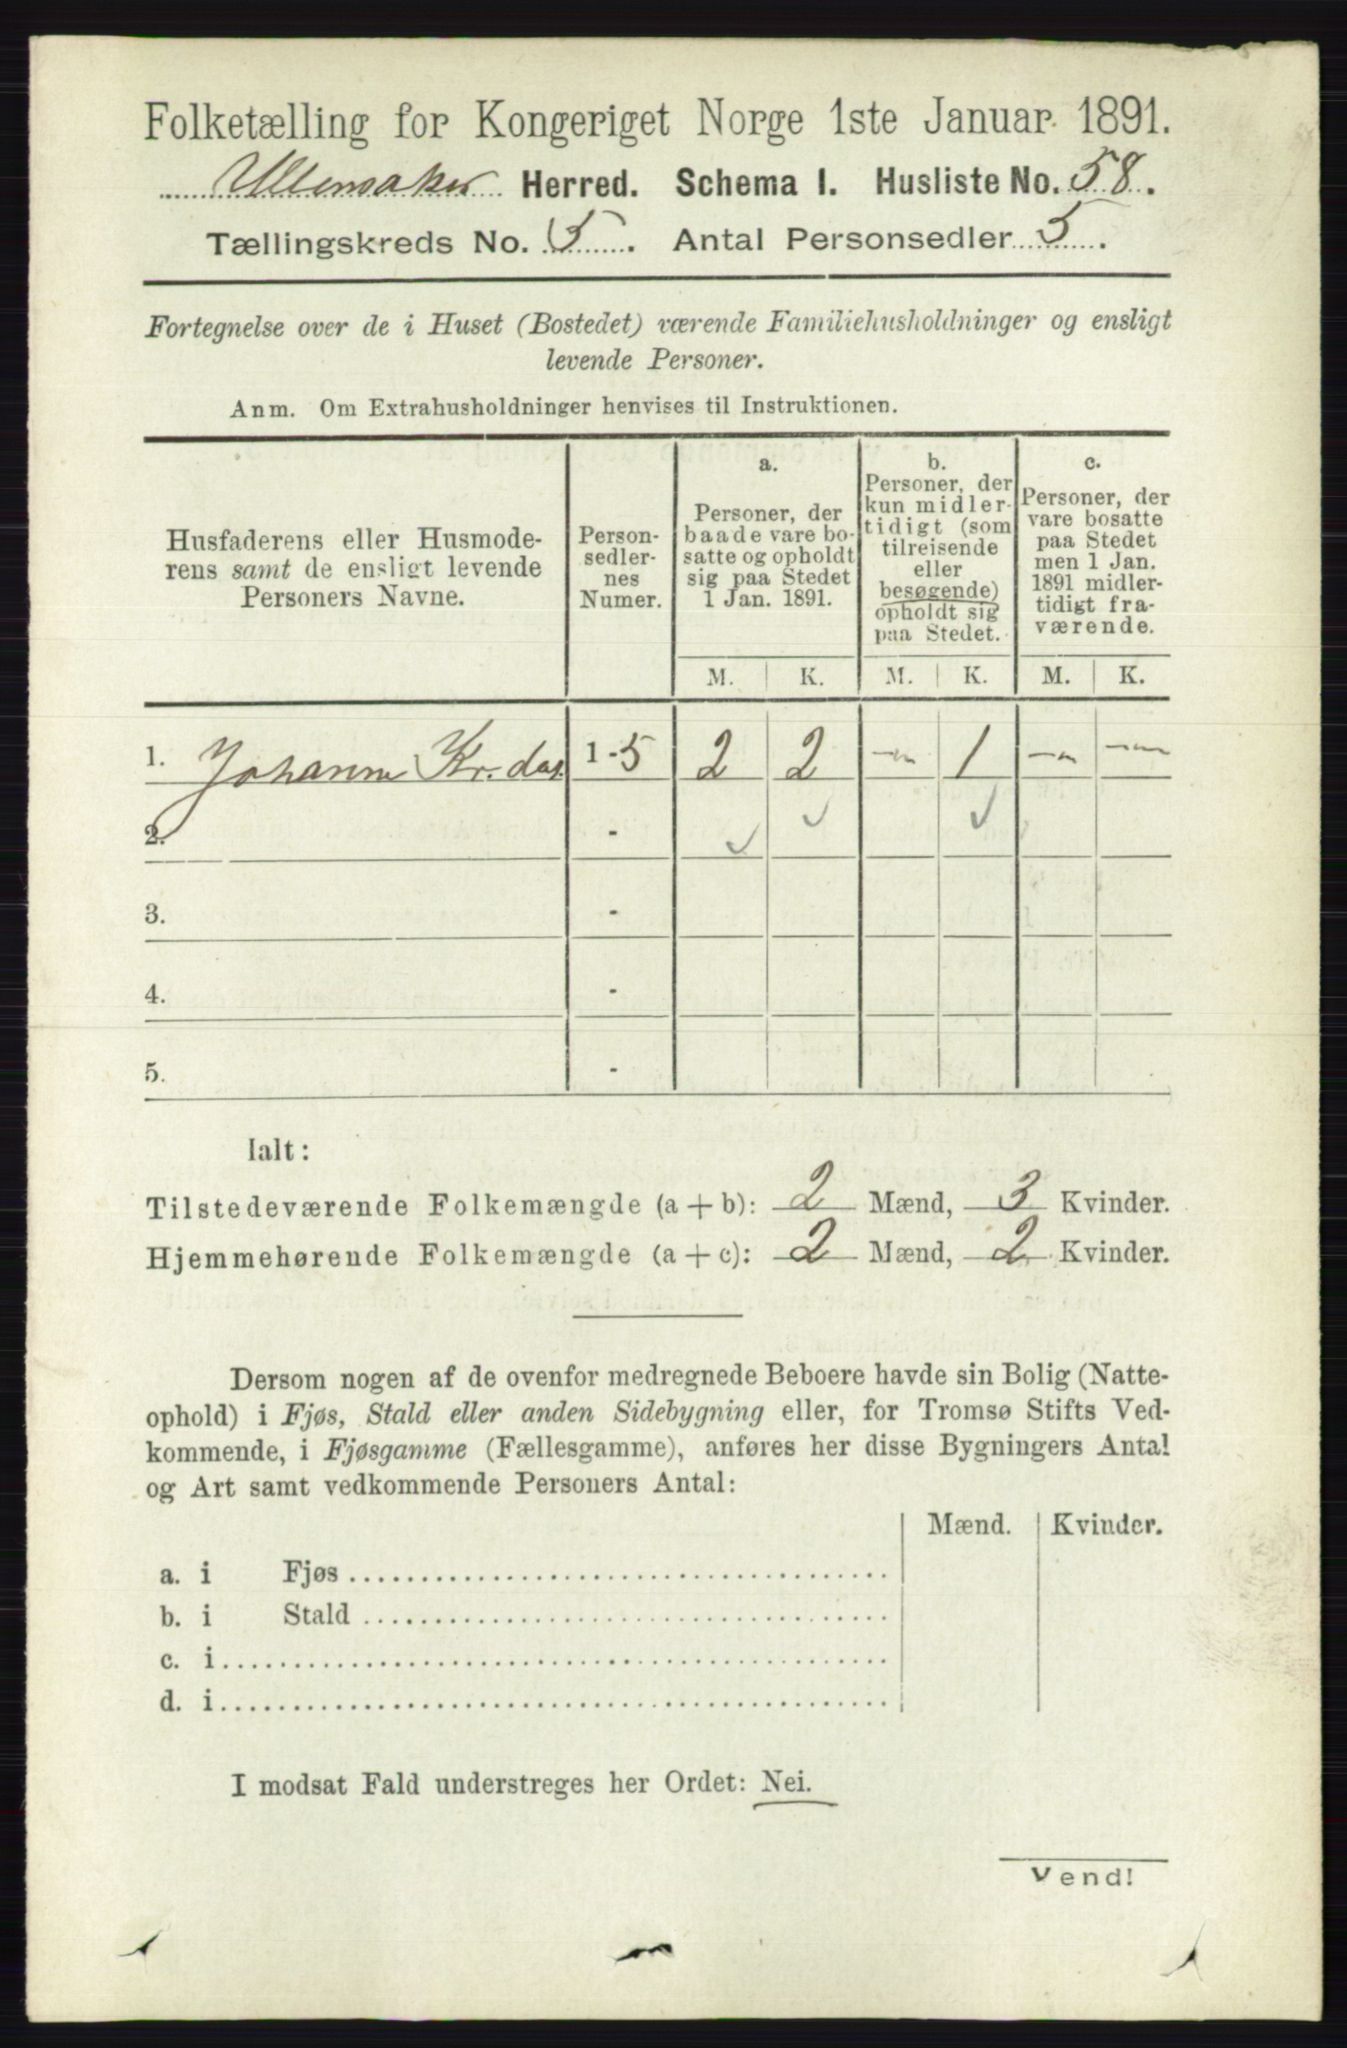 Folketælling for Kongeriget Norge 1ste Januar 1891.
Ullensaker Herred. Schema I. Husliste No. 58.
Tællingskreds No. 5. Antal Personsedler 5.
Fortegnelse over de i Huset (Bostedet) værende Familiehusholdninger og ensligt
levende Personer.
Anm. Om Extrahusholdninger henvises til Instruktionen.
Husfaderens eller Husmode-
rens samt de ensligt levende
Personers Navne.
Person-
sedler-
nes
Numer.
a.
Personer, der
baade vare bo-
satte og opholdt
sig paa Stedet
1 Jan. 1891.
b.
Personer, der
kun midler-
tidigt (som
tilreisende
eller
besøgende)
opholdt sig
paa Stedet.
c.
Personer, der
vare bosatte
paa Stedet
men 1 Jan.
1891 midler-
tidigt fra-
værende.
M. K. M. K. M. K.
1. Johanne Kr. dat. 1 - 5 2 2 — 1 — —
2. -
3. -
4. -
5. -
Ialt:
Tilstedeværende Folkemængde (a + b): 2 Mænd, 3 Kvinder.
Hjemmehørende Folkemængde (a + c): 2 Mænd, 2 Kvinder.
Dersom nogen af de ovenfor medregnede Beboere havde sin Bolig (Natte-
ophold) i Fjøs, Stald eller anden Sidebygning eller, for Tromsø Stifts Ved-
kommende, i Fjøsgamme (Fællesgamme), anføres her disse Bygningers Antal
og Art samt vedkommende Personers Antal:
Mænd. Kvinder.
a. i Fjøs
b. i Stald
c. i
d. i
I modsat Fald understreges her Ordet: Nei.
Vend!